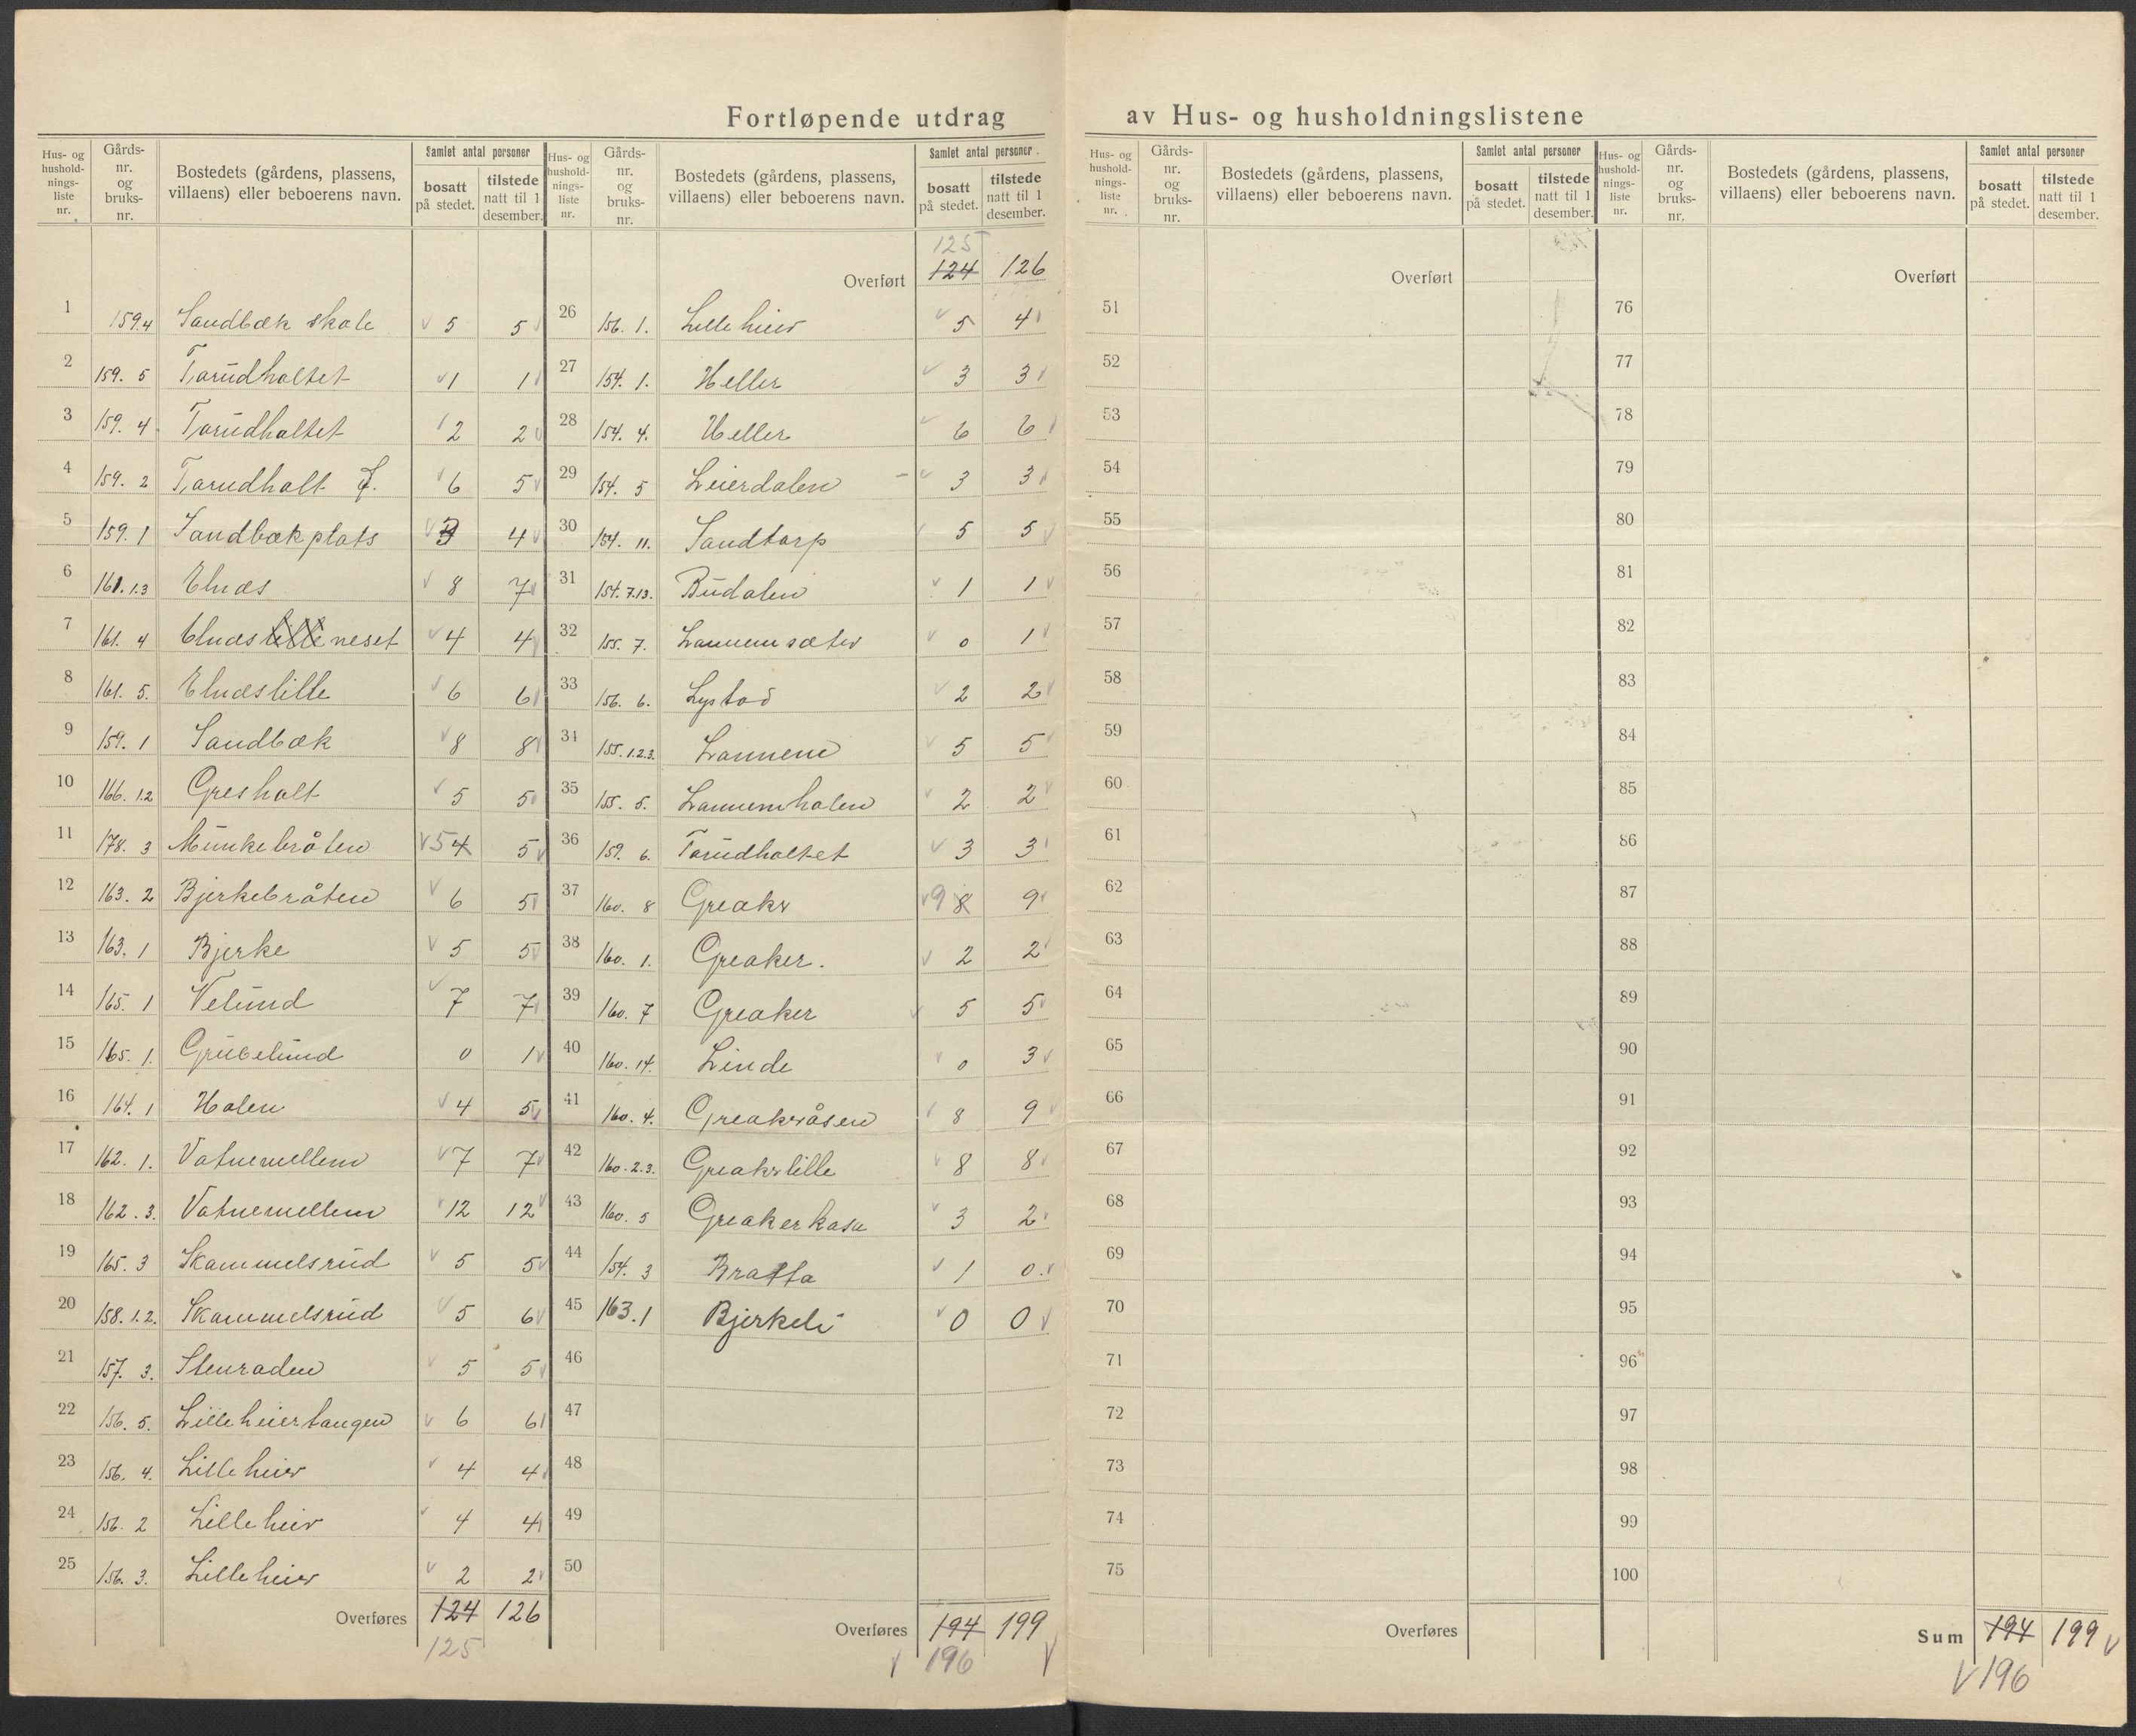 Fortløpende utdrag av Hus- og husholdningslistene
Hus- og husholdningsliste nr. | Gårds- nr. og bruks- nr. | Bostedets (gårdens, plassens, villaens) eller beboerens navn. | Samlet antal personer | bosatt på stedet. | tilstede natt til 1 desember.
1 159.4 Sandbæk skole 5 5
2 159. 5 Tarudholtet 1 1
3 159. 4 Tarudholtet 2 2
4 159. 2 Tarudholt 6 5
5 159. 1 Sandbækplats 3 4
6 161. 1.3 Elnæs 8 7
7 161. 4 Elnæs lille neset 4 4
8 161. 5. Elnæslille 6 6
9 159. 1 Sandbæk 8 8
10 166. 1.2 Gresholt 5 5
11 178. 3 Munkebråten 5 4 5
12 163. 2 Bjerkebråten 6 5
13 163. 1 Bjerke 5 5
14 165. 1 Velund 7 7
15 165. 1. Grübelund 0 1
16 164. 1 Holen 4 5
17 162. 1. Vatnemellem 7 7
18 162. 3. Vatnemellem 12 12
19 165. 3 Skammelsrud 5 5
20 158. 1.2. Skammelsrud 5 6
21 157. 3. Stenraden 5 5
22 156. 5. Lilleheiertangen 6 6
23 156. 4. Lilleheier 4 4
24 156. 2 Lilleheier 4 4
25 156. 3. Lilleheier 2 2
Overføres 124 126
125
Hus- og husholdningsliste nr. | Gårds- nr. og bruks- nr. | Bostedets (gårdens, plassens, villaens) eller beboerens navn. | Samlet antal personer | bosatt på stedet. | tilstede natt til 1 desember.
125
Overført 124 126
26 156. 1. Lilleheier 5 4
27 154. 1. Heller 3 3
28 154. 4. Heller 6 6
29 154. 5 Leierdalen 3 3
30 154. 11. Sandtorp 5 5
31 154. 7.13. Budalen 1 1
32 155. 7. Lannemsæter 0 1
33 156. 6. Lystad 2 2
34 155. 1.2.3. Lannem 5 5
35 155. 5. Lannemholen 2 2
36 159. 6. Tarudholtet 3 3
37 160. 8 Greaker 9 8 9
38 160. 1. Greaker. 2 2
39 160. 7 Greaker 5 5
40 160. 14. Linde 0 3
41 160. 4. Greakeråsen 8 9
42 160. 2.3. Greakerlille 8 8
43 160. 5 Greakerkasa 3 2
44 154. 3 Bratta 1 0.
45 163. 1 Bjerkeli 0 0
46
47
48
49
50
Overføres 194 199
196
Hus- og husholdningsliste nr. | Gårds- nr. og bruks- nr. | Bostedets (gårdens, plassens, villaens) eller beboerens navn. | Samlet antal personer | bosatt på stedet. | tilstede natt til 1 desember.
Overført
51
52
53
54
55
56
57
58
59
60
61
62
63
64
65
66
67
68
69
70
71
72
73
74
75
Overføres
Hus- og husholdningsliste nr. | Gårds- nr. og bruks- nr. | Bostedets (gårdens, plassens, villaens) eller beboerens navn. | Samlet antal personer | bosatt på stedet. | tilstede natt til 1 desember.
Overført
76
77
78
79
80
81
82
83
84
85
86
87
88
89
90
91
92
93
94
95
96
97
98
99
100
Sum 194 199
196